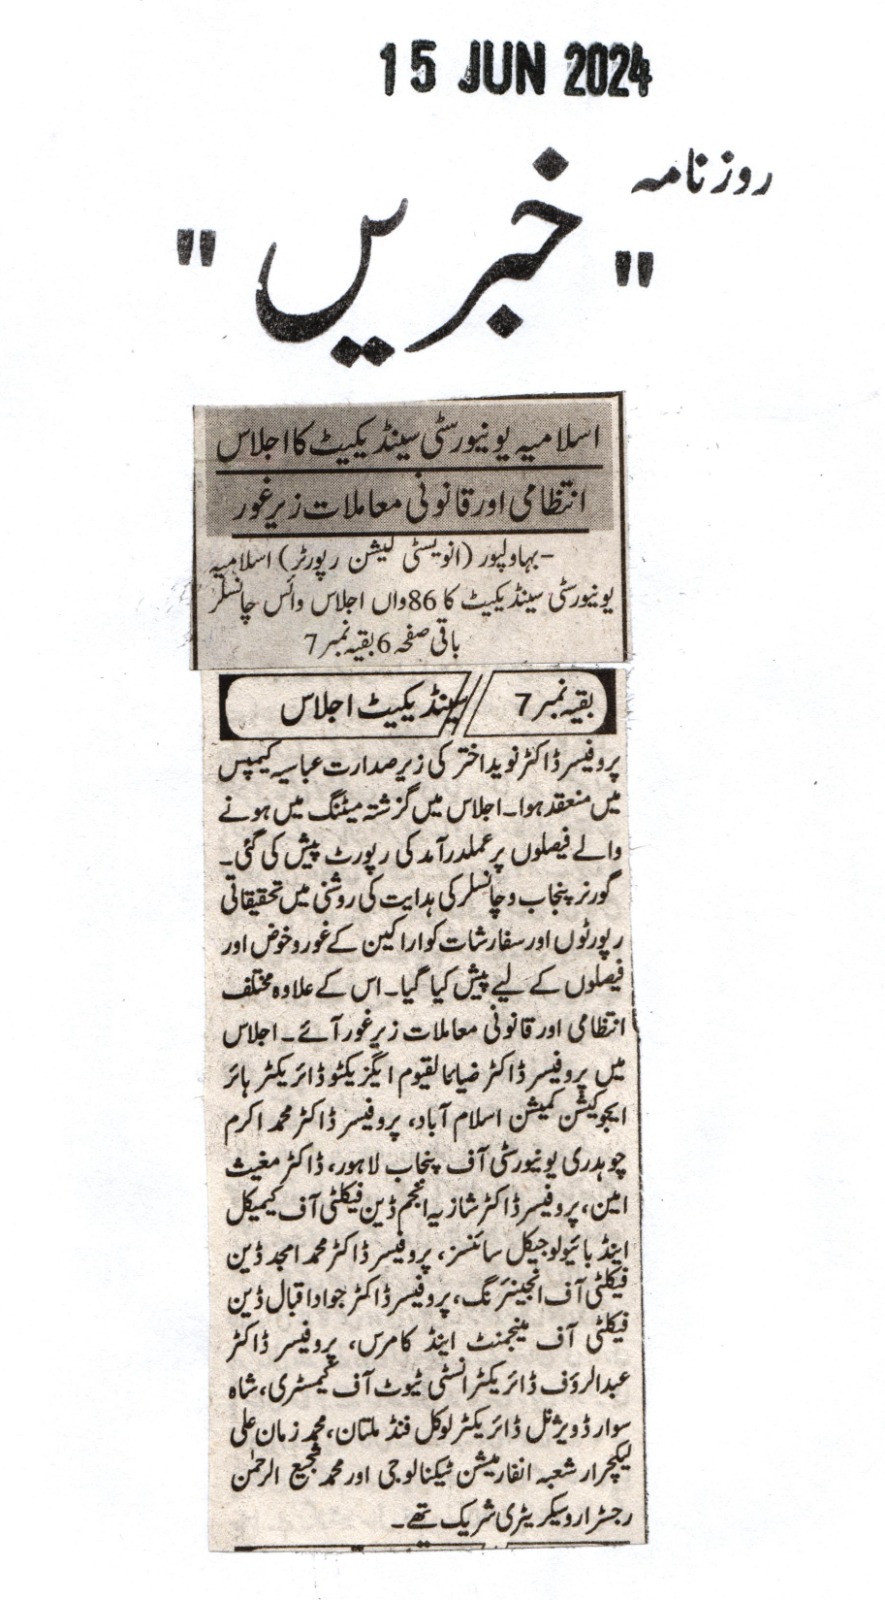 15 JUN 2024
روزنامہ
"خبریں"
اسلامیہ یونیورسٹی سینڈیکیٹ کا اجلاس
انتظامی اور قانونی معاملات زیر غور
-بہاولپور (انویسٹی گیشن رپورٹر) اسلامیہ
یونیورسٹی سینڈیکیٹ کا 86واں اجلاس وائس چانسلر
باقی صفحہ 6 بقیہ نمبر 7
بقیہ نمبر 7 // سینڈیکیٹ اجلاس
پروفیسر ڈاکٹر نوید اختر کی زیر صدارت عباسیہ کیمپس
میں منعقد ہوا۔ اجلاس میں گزشتہ میٹنگ میں ہونے
والے فیصلوں پر عملدرآمد کی رپورٹ پیش کی گئی۔
گورنر پنجاب و چانسلر کی ہدایت کی روشنی میں تحقیقاتی
رپورٹوں اور سفارشات کو اراکین کے غور و خوض اور
فیصلوں کے لیے پیش کیا گیا۔ اس کے علاوہ مختلف
انتظامی اور قانونی معاملات زیر غور آئے۔ اجلاس
میں پروفیسر ڈاکٹر ضیاءالقیوم ایگزیکٹو ڈائریکٹر ہائر
ایجوکیشن کمیشن اسلام آباد، پروفیسر ڈاکٹر محمد اکرم
چوہدری یونیورسٹی آف پنجاب لاہور، ڈاکٹر مغیث
امین، پروفیسر ڈاکٹر شازیہ انجم ڈین فیکلٹی آف کیمیکل
اینڈ بائیولوجیکل سائنسز، پروفیسر ڈاکٹر محمد امجد ڈین
فیکلٹی آف انجینئرنگ، پروفیسر ڈاکٹر جواد اقبال ڈین
فیکلٹی آف مینجمنٹ اینڈ کامرس، پروفیسر ڈاکٹر
عبدالرؤف ڈائریکٹر انسٹی ٹیوٹ آف کیمسٹری، شاہ
سوار ڈویژنل ڈائریکٹر لوکل فنڈ ملتان، محمد زمان علی
لیکچرار شعبہ انفارمیشن ٹیکنالوجی اور محمد شجیع الرحمٰن
رجسٹرار و سیکریٹری شریک تھے۔